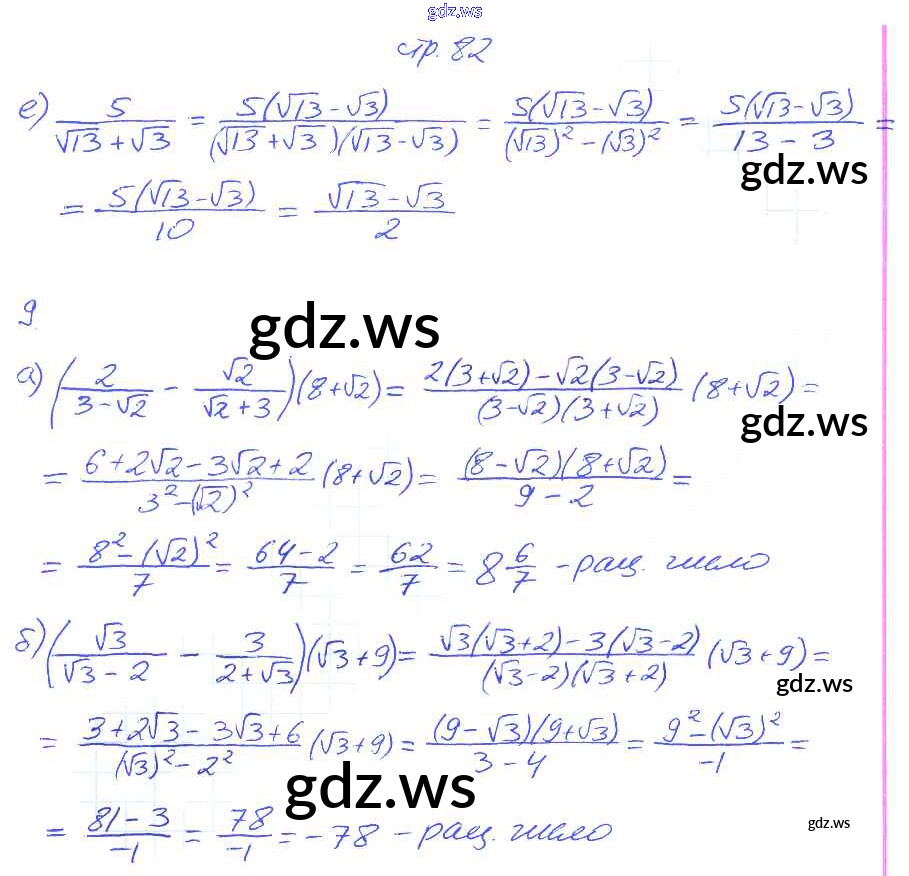 gdz.ws
стр. 82
е) 5/(√13+√3) = 5(√13-√3)/((√13+√3)(√13-√3)) = 5(√13-√3)/((√13)²-(√3)²) = 5(√13-√3)/(13-3) =
gdz.ws
= 5(√13-√3)/10 = (√13-√3)/2
9.
gdz.ws
а) (2/(3-√2) - √2/(√2+3))(8+√2) = (2(3+√2)-√2(3-√2))/((3-√2)(3+√2)) (8+√2) =
gdz.ws
= (6+2√2-3√2+2)/(3²-(√2)²) (8+√2) = ((8-√2)(8+√2))/(9-2) =
= (8²-(√2)²)/7 = (64-2)/7 = 62/7 = 8 6/7 - рац. число
б) (√3/(√3-2) - 3/(2+√3))(√3+9) = (√3(√3+2)-3(√3-2))/((√3-2)(√3+2)) (√3+9) =
gdz.ws
= (3+2√3-3√3+6)/((√3)²-2²) (√3+9) = ((9-√3)(9+√3))/(3-4) = (9²-(√3)²)/-1 =
gdz.ws
= (81-3)/-1 = 78/-1 = -78 - рац. число
gdz.ws